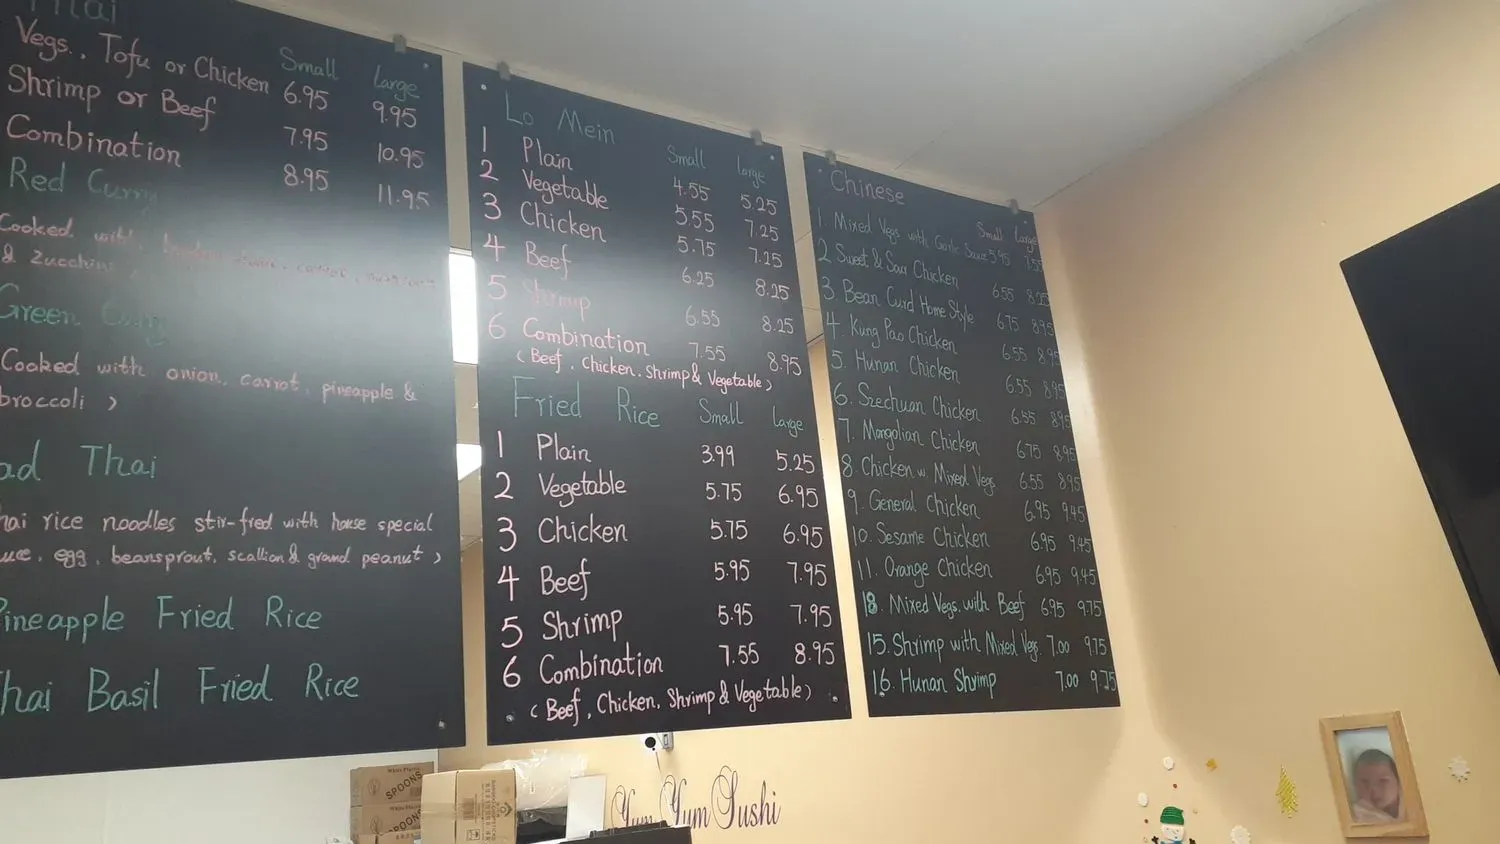 Thai
Small large
Vegs., Tofu or Chicken 6.95 9.95
Shrimp or Beef 7.95 10.95
Combination 8.95 11.95
Red Curry
Cooked with,
& zucchini
Green Curry
Cooked with onion, carrot, pineapple &
broccoli )
ad Thai
hai rice noodles stir-fred with house special
uce, egg, beansprout, scallion & grand peanut )
Pineapple Fried Rice
Thai Basil Fried Rice
Lo Mein Small large
1 Plain 4.55 5.25
2 Vegetable 5.55 7.25
3 Chicken 5.75 7.25
4 Beef 6.25 8.25
5 Shrimp 6.55 8.25
6 Combination 7.55 8.95
( Beef, Chicken, Shrimp & Vegetable )
Fried Rice Small large
1 Plain 3.99 5.25
2 Vegetable 5.75 6.95
3 Chicken 5.75 6.95
4 Beef 5.95 7.95
5 Shrimp 5.95 7.95
6 Combination 7.55 8.95
( Beef, Chicken, Shrimp & Vegetable )
Chinese
Small large
1 Mixed Vegs with Garlic Sauce 5.95 7.55
2 Sweet & Sour Chicken 6.55 8.25
3 Bean Curd Home Style 6.75 8.95
4. Kung Pao Chicken 6.55 8.95
5. Hunan Chicken 6.55 8.95
6. Szechuan Chicken 6.55 8.95
7. Mongolian Chicken 6.75 8.95
8. Chicken w. Mixed Vegs 6.55 8.95
9. General Chicken 6.95 9.45
10. Sesame Chicken 6.95 9.45
11. Orange Chicken 6.95 9.45
18. Mixed Vegs. with Beef 6.95 9.75
15. Shrimp with Mixed Vegs. 7.00 9.75
16. Hunan Shrimp 7.00 9.75
SPOONS
SPOONS
Yum Yum Sushi